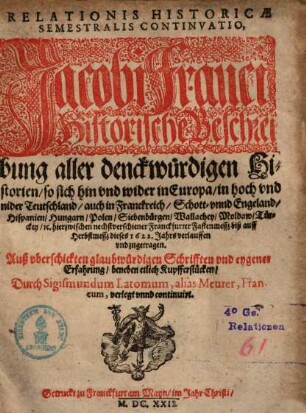 RELATIONIS HISTORICÆ
SEMESTRALIS CONTINVATIO,
Jacobi Franci
Historische Beschrei
bung aller denckwürdigen Hi-
storien/ so sich hin vnd wider in Europa/ in hoch vnd
nider Teutschland/ auch in Franckreich/ Schott- vnnd Engeland/
Hispanien/ Hungarn/ Polen/ Siebenbürgen/ Wallachey/ Moldaw/ Tür-
ckey/ ꝛc. hierzwischen nechstverschiener Franckfurter Fastenmeß/ biß auff
Herbstmeß/ dieses 1622. Jahrs verlauffen
vnd zugetragen.
Auß vberschickten glaubwürdigen Schrifften vnd eygener
Erfahrung/ beneben etlich Kupfferstücken/
Durch Sigismundum Latomum, alias Meurer, Fran-
cum, verlegt vnnd continuirt.
4° Ge.
Relationen
61
Getruckt zu Franckfurt am Mayn/ im Jahr Christi/
M. DC. XXII.